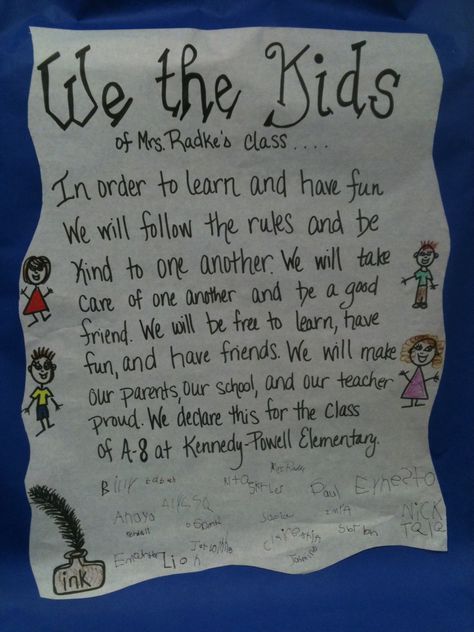 We the Kids
of Mrs. Radke's class....
In order to learn and have fun
We will follow the rules and be
Kind to one another. We will take
care of one another and be a good
friend. We will be free to learn, have
fun, and have friends. We will make
our parents, our school, and our teacher
proud. We declare this for the class
of A-8 at Kennedy-Powell Elementary.
Mrs. Radke
Billy Paul Ernesto
Anaya Nick
Lion
ink